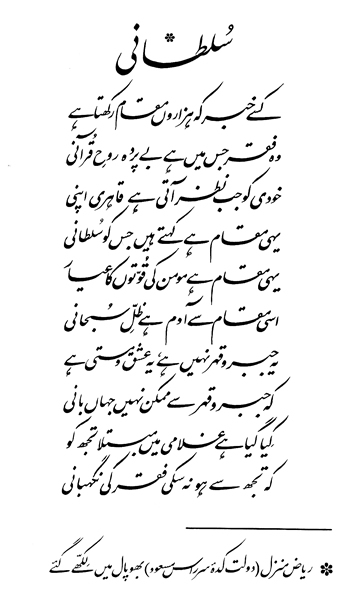 سُلطانی*
کسے خبر کہ ہزاروں مقام رکھتا ہے
وہ فقر جس میں ہے بے پردہ روحِ قُرآنی
خودی کو جب نظر آتی ہے قاہری اپنی
یہی مقام ہے کہتے ہیں جس کو سُلطانی
یہی مقام ہے مومن کی قوّتوں کا عیار
اسی مقام سے آدم ہے ظِلِّ سُبحانی
یہ جبر و قہر نہیں ہے، یہ عشق و مستی ہے
کہ جبر و قہر سے ممکن نہیں جہاں بانی
کِیا گیا ہے غلامی میں مبتلا تجھ کو
کہ تجھ سے ہو نہ سکی فقر کی نگہبانی
* ریاض منزل (دولت کدۂ سر راس مسعود) بھوپال میں لِکھّے گئے